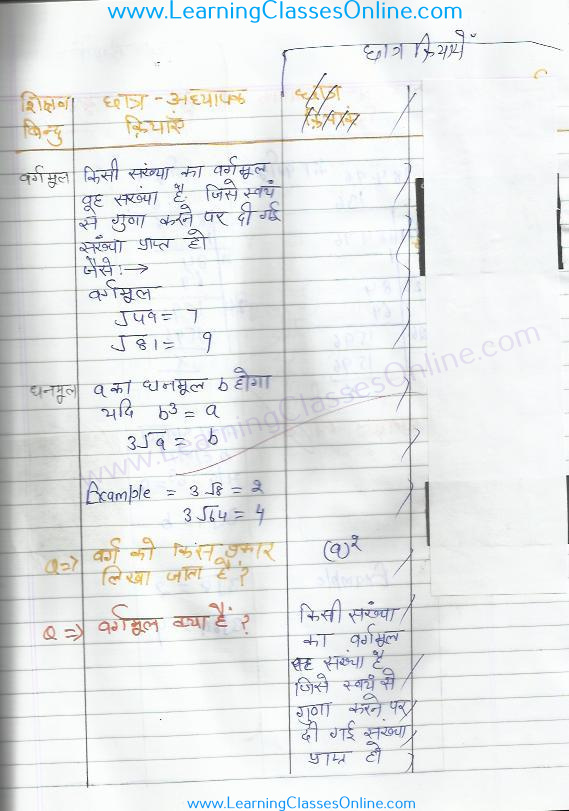 www.LearningClassesOnline.com
छात्र क्रियाएँ
शिक्षण छात्र - अध्यापक छात्र
बिन्दु क्रियाएं
वर्गमूल किसी सख्या का वर्गमूल
वह सख्या है, जिसे स्वयं
से गुणा करने पर दी गई
सख्या प्राप्त हो
जैसे:→
वर्गमूल
√49 = 7
√81 = 9
घनमूल a का घनमूल b होगा
यदि b³ = a
3√a = b
www.LearningClassesOnline.com
Example = 3√8 = 2
3√64 = 4
Q⇒ वर्ग को किस प्रकार (a)²
लिखा जाता है?
Q⇒ वर्गमूल क्या हैं? किसी सख्या
का वर्गमूल
वह सख्या है
जिसे स्वयं से
गुणा करने पर
दी गई संख्या
प्राप्त हो
www.LearningClassesOnline.com